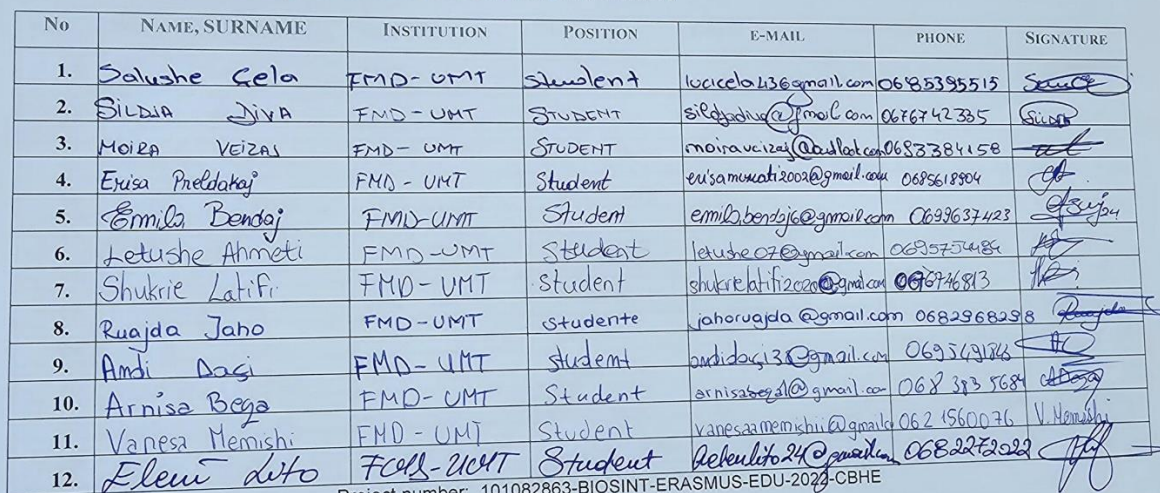 No NAME, SURNAME INSTITUTION POSITION E-MAIL PHONE SIGNATURE
1. Salushe Cela FMD-UMT Student lucicela436gmail.com 0685395515
2. SILDJA DIVA FMD-UMT STUDENT 0676742335 SILDJA
3. MOIRA VEIZAJ FMD-UMT STUDENT moiraveizaj@outlook.com 0683384158
4. Erisa Preldakaj FMD-UMT Student erisamuscati2002@gmail.com 0685618904
5. Emila Bendaj FMD-UMT Student emila.bendaj6@gmail.com 0699637423
6. Letushe Ahmeti FMD-UMT Student letushe07@gmail.com 0695754484
7. Shukrie Latifi FMD-UMT Student shukrielatifi2020@gmail.com 0676746813
8. Ruajda Jaho FMD-UMT Studente jahoruajda@gmail.com 0682968298 Ruajda
9. Andi Daçi FMD-UMT student andidaçi3@gmail.com 0695491846
10. Arnisa Bega FMD-UMT Student 068 383 5684
11. Vanesa Memishi FMD-UMT Student 062 1560076 V. Memishi
12. Eleni Lito UMT Student 0682272022
Project number: 101082863-BIOSINT-ERASMUS-EDU-2022-CBHE